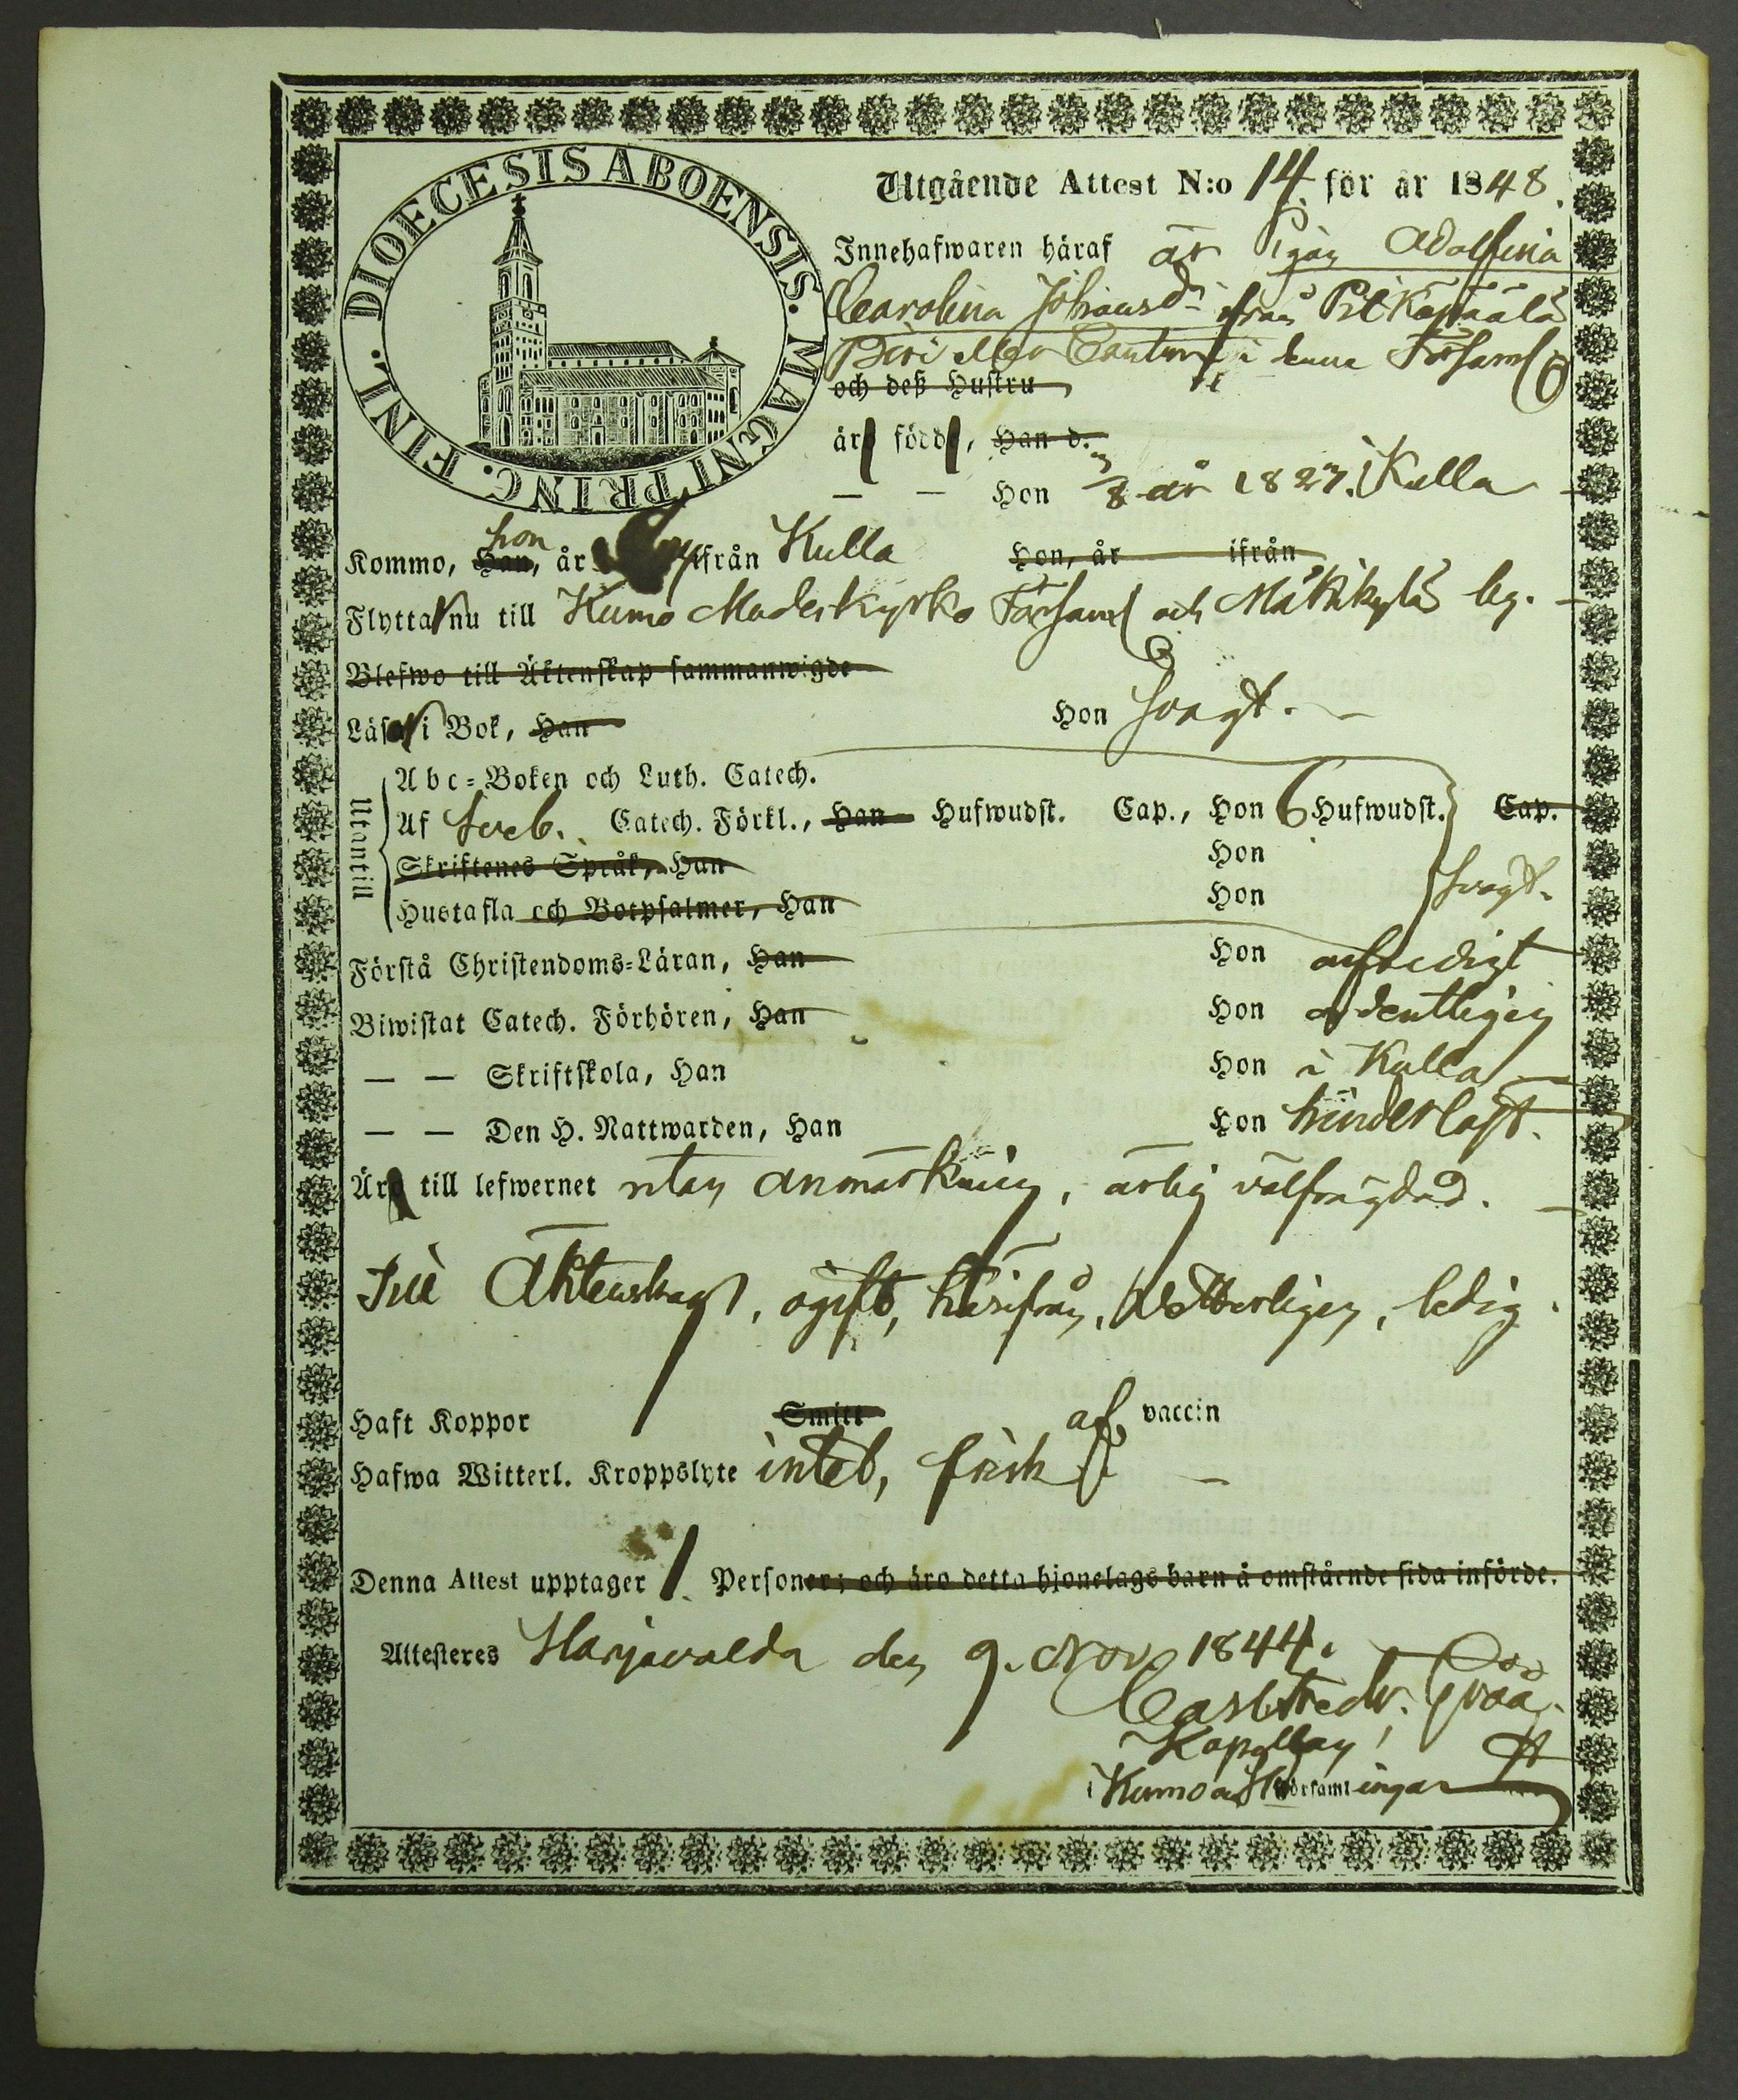 DIOECESIS ABOENSIS. MAGNI PRINC. FINL.
Utgående Attest N:o 14 för år 1848.
Innehafwaren häraf är Pigan Adolfina
Carolina Johansdr ifrån
i denna Församl
och deß Hustru
äro födde, Han d.
— — Hon år 1827 i Kulla
Kommo, Han, hon år ifrån Kulla Hon, år ifrån
Flytta nu till Kumo Moderkyrko Församl och Mattikylä by.
Blefwo till Äktenskap sammanwigde
Läsa i Bok, Han Hon svagt.
Utantill
Abc-Boken och Luth. Catech.
Af Sveb. Catech. Förkl., Han Hufwudst. Cap., Hon 6 Hufwudst. Cap.
Skriftenes Språk, Han Hon
Hustafla och Botpsalmer, Han Hon svagt.
Förstå Christendoms-Läran, Han Hon
Biwistat Catech. Förhören, Han Hon ordentligen
— — Skriftskola, Han Hon i Kulla
— — Den H. Nattwarden, Han Hon hinderlöst.
Äro till lefwernet utan anmärkning, ärlig välfrägdad.
Till Äktenskap, ogift, härifrån, Wetterligen, ledig.
Haft Koppor Smitt af vaccin
Hafwa Witterl. Kroppslyte intet, frisk
Denna Attest upptager 1 Personer; och äro detta hjonelags barn å omstående sida införde.
Attesteres Harjavalda den 9. Nov 1844.
Carl Fredr.
Kapellan
i Kumo Församlingar